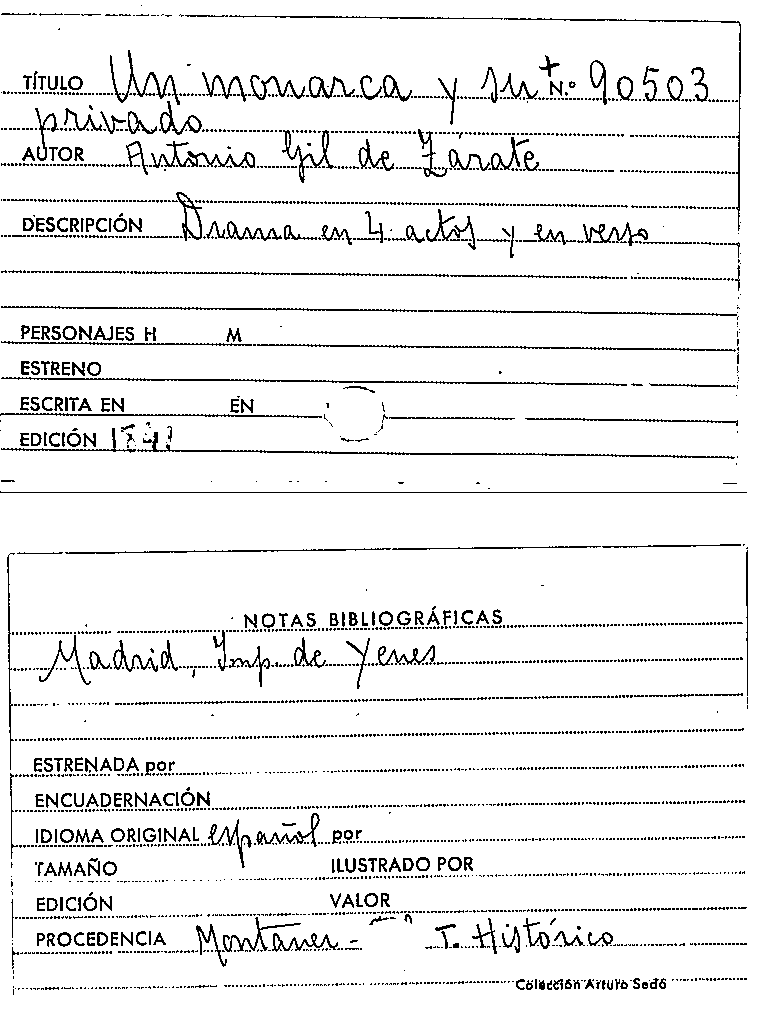 TÍTULO Un monarca y su + N.º 90503
privado
AUTOR Antonio Gil de Zárate
DESCRIPCIÓN Drama en 4 actos y en verso
PERSONAJES H M
ESTRENO
ESCRITA EN EN
EDICIÓN 1841
NOTAS BIBLIOGRÁFICAS
Madrid, Imp. de Yenes
ESTRENADA por
ENCUADERNACIÓN
IDIOMA ORIGINAL español por
TAMAÑO ILUSTRADO POR
EDICIÓN VALOR
PROCEDENCIA Montaner - T. Histórico
Colección Arturo Sedó